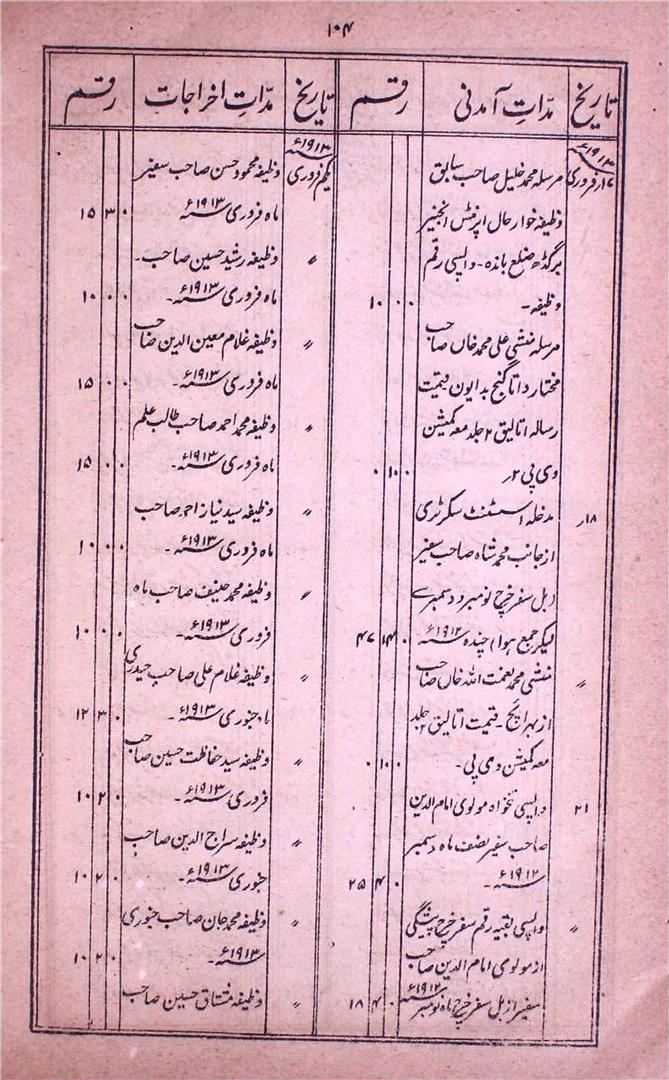 ۱۰۴
تاریخ مدّاتِ آمدنی رقم
۱۹۱۳ء
۱۷ر فروری مرسلہ محمد خلیل صاحب سابق
وظیفہ خوار حال اپرنٹس انجنیر
برگڈھ ضلع باندہ ۔ واپسی رقم
وظیفہ ۔ ۰ ۰ ۱۰
مرسلہ منشی علی محمد خاں صاحب
مختار داتا گنج بدایون قیمت
رسالہ اتالیق ۲ جلد معہ کمیشن
وی پی ۲ر ۰ ۱۰ ۰
۱۸ر مدخلہ اسسٹنٹ سکرٹری
ازجانب محمد شاہ صاحب سفیر
(بل سفر خرچ نومبر و دسمبر سے
لیکر جمع ہوا) چندہ ۱۹۱۲ء ۰ ۱۴ ۴۷
〃 منشی محمد نعمت اللہ خاں صاحب
از بہرائچ ۔ قیمت اتالیق ۲ جلد
معہ کمیشن وی پی ۔ ۰ ۱۰ ۰
۲۱ واپسی تنخواہ مولوی امام الدین
صاحب سفیر نصف ماہ دسمبر
۱۹۱۲ء ۔ ۰ ۴ ۲۵
〃 واپسی بقیہ رقم سفر خرچ پیشگی
از مولوی امام الدین صاحب
سفیر از بل سفر خرچ ماہ نومبر ۱۹۱۲ء ۰ ۴ ۱۸
تاریخ مدّاتِ اخراجات رقم
۱۹۱۳ء
یکم فروری وظیفہ محمود حسن صاحب سفیر
ماہ فروری ۱۹۱۳ء ۰ ۳ ۱۵
〃 وظیفہ رشید حسین صاحب ۔
ماہ فروری ۱۹۱۳ء ۔ ۰ ۰ ۱۰
〃 وظیفہ غلام معین الدین صاحب
ماہ فروری ۱۹۱۳ء ۔ ۰ ۰ ۱۵
〃 وظیفہ محمد احمد صاحب طالب علم
ماہ فروری ۱۹۱۳ء ۔ ۰ ۰ ۱۵
〃 وظیفہ سید نیاز احمد صاحب
ماہ فروری ۱۹۱۳ء ۔ ۰ ۰ ۱۰
〃 وظیفہ محمد حنیف صاحب ماہ
فروری ۱۹۱۳ء ۔ ۰ ۰ ۱۰
〃 وظیفہ غلام علی صاحب حیدری
ماہ جنوری ۱۹۱۳ء ۔ ۰ ۳ ۱۲
〃 وظیفہ سید حفاظت حسین صاحب
فروری ۱۹۱۳ء ۔ ۰ ۲ ۱۰
〃 وظیفہ سراج الدین صاحب
جنوری ۱۹۱۳ء ۔ ۰ ۲ ۱۰
〃 وظیفہ محمد جان صاحب جنوری
۱۹۱۳ء ۔ ۰ ۲ ۱۰
〃 وظیفہ مشتاق حسین صاحب